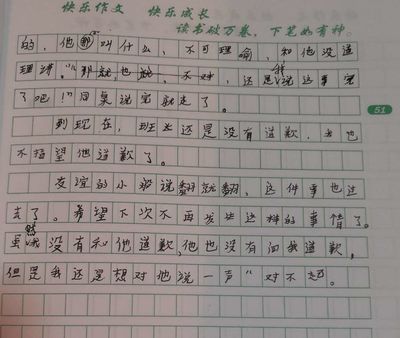 快乐作文 快乐成长
读书破万卷，下笔如有神。
的，他叫什么，不可理喻，和他没道
理讲。"那就也就，不对，还是我说这事完
了吧！"同桌说完就走了。
51
到现在，班上还是没有道歉，我也
不指望他道歉了。
友谊的小船说翻就翻，这件事也过
去了。希望下次不再发生这样的事情了。
虽然我没有和他道歉，他也没有向我道歉，
但是我还是想对他说一声"对不起。